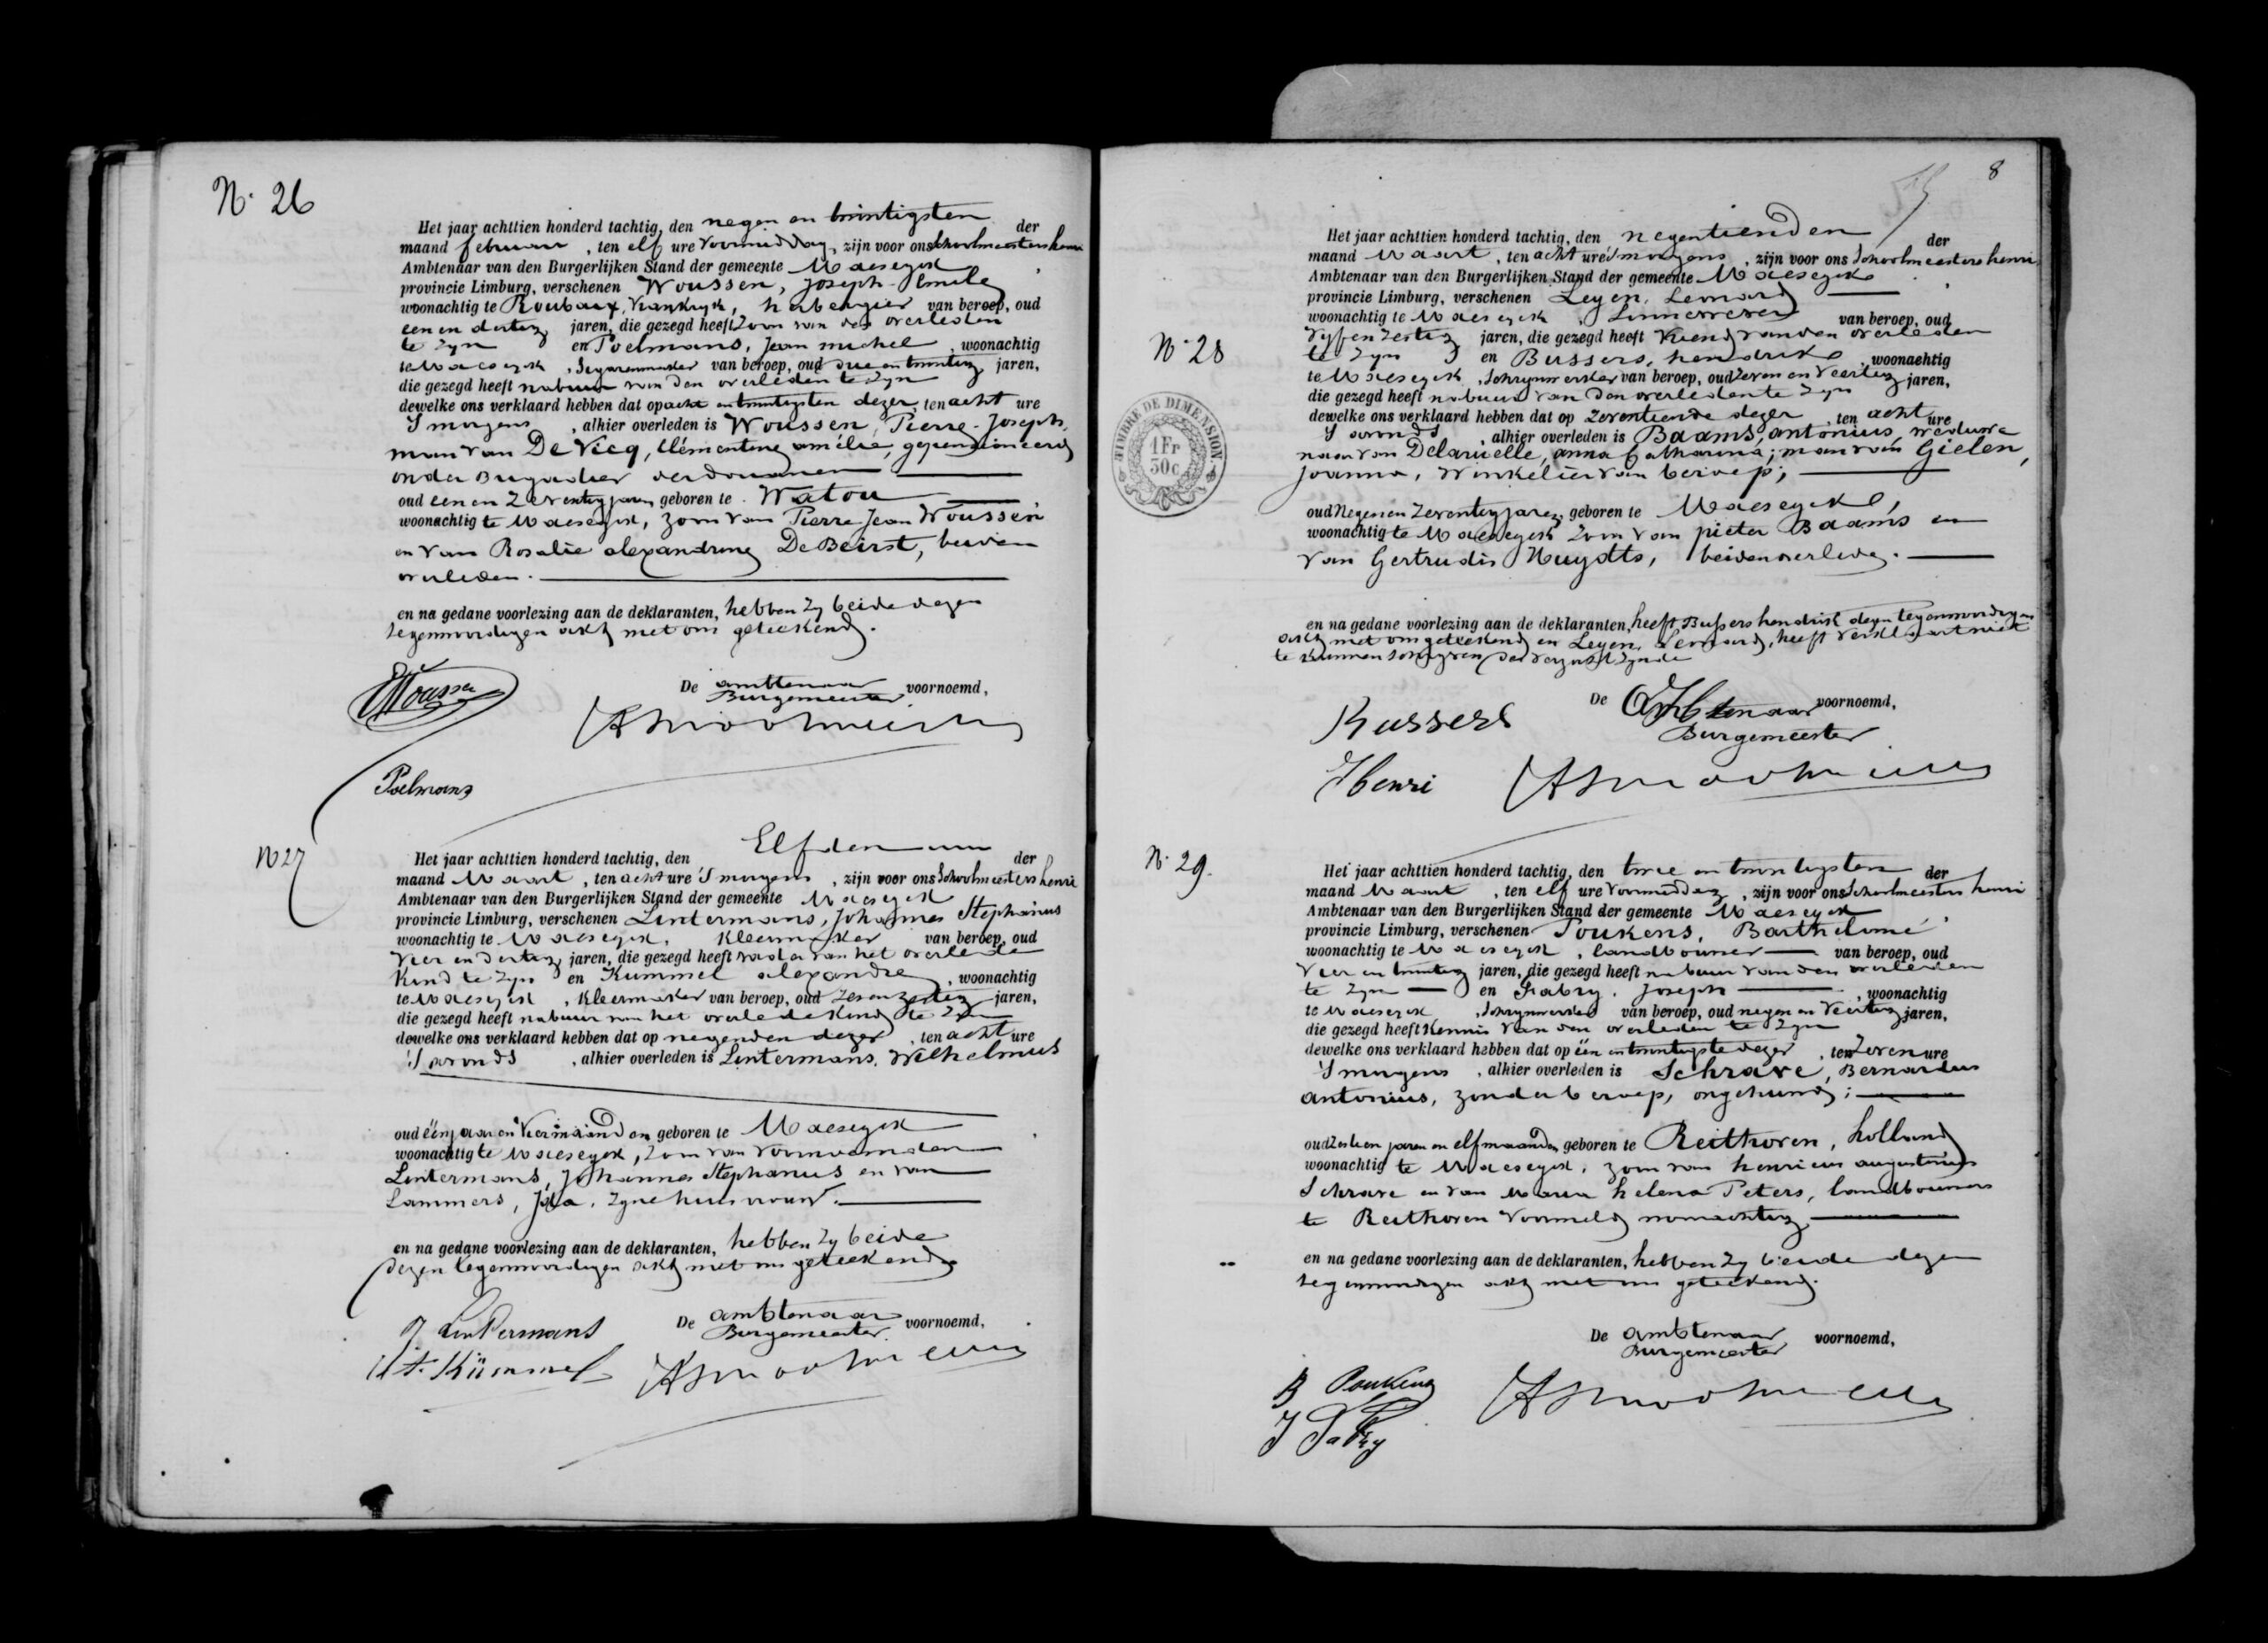 N. 26
Het jaar achttien honderd tachtig, den negen en twintigsten der
maand februari, ten elf ure voormiddag, zijn voor ons Schoolmeesters henri
Ambtenaar van den Burgerlijken Stand der gemeente Maeseyck,
provincie Limburg, verschenen Woussen, Joseph-Emile
woonachtig te Roubaix, Frankryk, herbergier van beroep, oud
een en dertig jaren, die gezegd heeft zoon van den overleden
te zyn en Poelmans, Jean michel, woonachtig
te Maeseyck, Segarenmaker van beroep, oud drie en twintig jaren,
die gezegd heeft nabuur van den overleden te zyn
dewelke ons verklaard hebben dat op acht en twintigsten dezer, ten acht ure
'S morgens, alhier overleden is Woussen, Pierre-Joseph,
man van De Vicq, Clémentine amélie, gepensioneerd
onder Brigadier der douanen
oud een en zeventig jaren geboren te Watou
woonachtig te Maeseyck, zoon van Pierre Jean Woussen
en van Rosalie alexandrine De Beirst, beiden
overleden.
en na gedane voorlezing aan de deklaranten, hebben zy beide dezen
tegenwoordigen akt met ons geteekend.
De ambtenaar voornoemd,
Burgemeester
Woussen
Poelmans
N 27
Het jaar achttien honderd tachtig, den Elfden der
maand Maart, ten acht ure 'S morgens, zijn voor ons Schoolmeesters henri
Ambtenaar van den Burgerlijken Stand der gemeente Maeseyck
provincie Limburg, verschenen Lintermans, Johannes Stephanus
woonachtig te Maeseyck, Kleermaker van beroep, oud
Vier en dertig jaren, die gezegd heeft vader van het overlede
Kind te zyn en Kummel alexandre, woonachtig
te Maeseyck, Kleermaker van beroep, oud zeven zestig jaren,
die gezegd heeft nabuur van het overlede Kind te zyn
dewelke ons verklaard hebben dat op negenden dezer, ten acht ure
'S avonds, alhier overleden is Lintermans, Wilhelmus
oud één jaar en vier maanden geboren te Maeseyck
woonachtig te Maeseyck, zoon van voornoemden
Lintermans, Johannes Stephanus en van
Lammers, Ida, zyne huisvrouw.
en na gedane voorlezing aan de deklaranten, hebben zy beide
dezen tegenwoordigen akt met ons geteekend
De ambtenaar voornoemd,
Burgemeester
J Lintermans
A. Kümmel
8
TIMBRE DE DIMENSION
1 Fr
30 c
N. 28
Het jaar achttien honderd tachtig, den negentienden der
maand Maart, ten acht ure 'Smorgens, zijn voor ons Schoolmeesters henri,
Ambtenaar van den Burgerlijken Stand der gemeente Maeseyck,
provincie Limburg, verschenen Leyen, Leonard
woonachtig te Maeseyck, Linnewever van beroep, oud
Vyf en zestig jaren, die gezegd heeft Vriend van den overleden
te zyn en Bussers, hendrik, woonachtig
te Maeseyck, Schrynwerker van beroep, oud zeven en Veertig jaren,
die gezegd heeft nabuur van den overleden te zyn
dewelke ons verklaard hebben dat op zeventiende dezer, ten acht ure
'S avonds, alhier overleden is Baams, antonius, weduwe
naar van Delaruelle, anna Catharina; man van Gielen,
Joanna, Winkelier van beroep;
oud Negen en zeventig jaren, geboren te Maeseyck,
woonachtig te Maeseyck zoon van pieter Baams en
van Gertrudis Nuydts, beiden overleden.
en na gedane voorlezing aan de deklaranten, heeft Bussers hendrik dezen tegenwoordigen
akt met ons geteekend en Leyen, Leonard, heeft verklaart niet
te kunnen schryven des verzocht zynde
De Ambtenaar voornoemd,
Burgemeester
Bussers
Henri
N. 29.
Het jaar achttien honderd tachtig, den twee en twintigsten der
maand Maart, ten elf ure voormiddag, zijn voor ons Schoolmeesters henri
Ambtenaar van den Burgerlijken Stand der gemeente Maeseyck,
provincie Limburg, verschenen Poukens, Barthelomé
woonachtig te Maeseyck, landbouwer van beroep, oud
Vier en twintig jaren, die gezegd heeft nabuur van den overleden
te zyn en Fabry, Joseph, woonachtig
te Maeseyck, Schrynwerker van beroep, oud negen en Veertig jaren,
die gezegd heeft Kennis van den overleden te zyn
dewelke ons verklaard hebben dat op één en twintigste dezer, ten zeven ure
'S morgens, alhier overleden is Schrave, Bernardus
Antonius, zonder beroep, ongehuwd;
oud zestien jaren en elf maanden geboren te Reithoven, holland
woonachtig te Maeseyck, zoon van henricus augustinus
Schrave en van Maria helena Peters, landbouwers
te Reithoven voormeld woonachtig
en na gedane voorlezing aan de deklaranten, hebben zy beide dezen
tegenwoordigen akt met ons geteekend.
De ambtenaar voornoemd,
Burgemeester
B Poukens
J Fabry